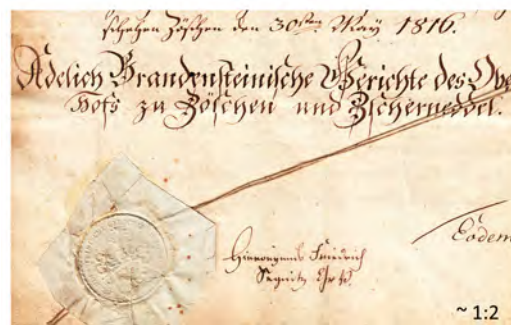 schehen Zöschen den 30sten May 1816.
Adelich Brandensteinische Gerichte des Obe
Hofs zu Zöschen und Zscherneddel.
Hieronymus Friedrich
Eodem
~ 1:2